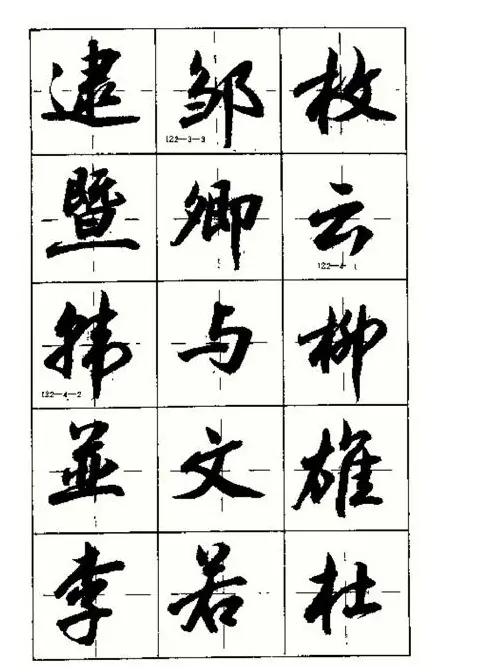 逮邹枚
122-3-3
暨卿云
122-4-1
韩与柳
122-4-2
並文雄
李若杜